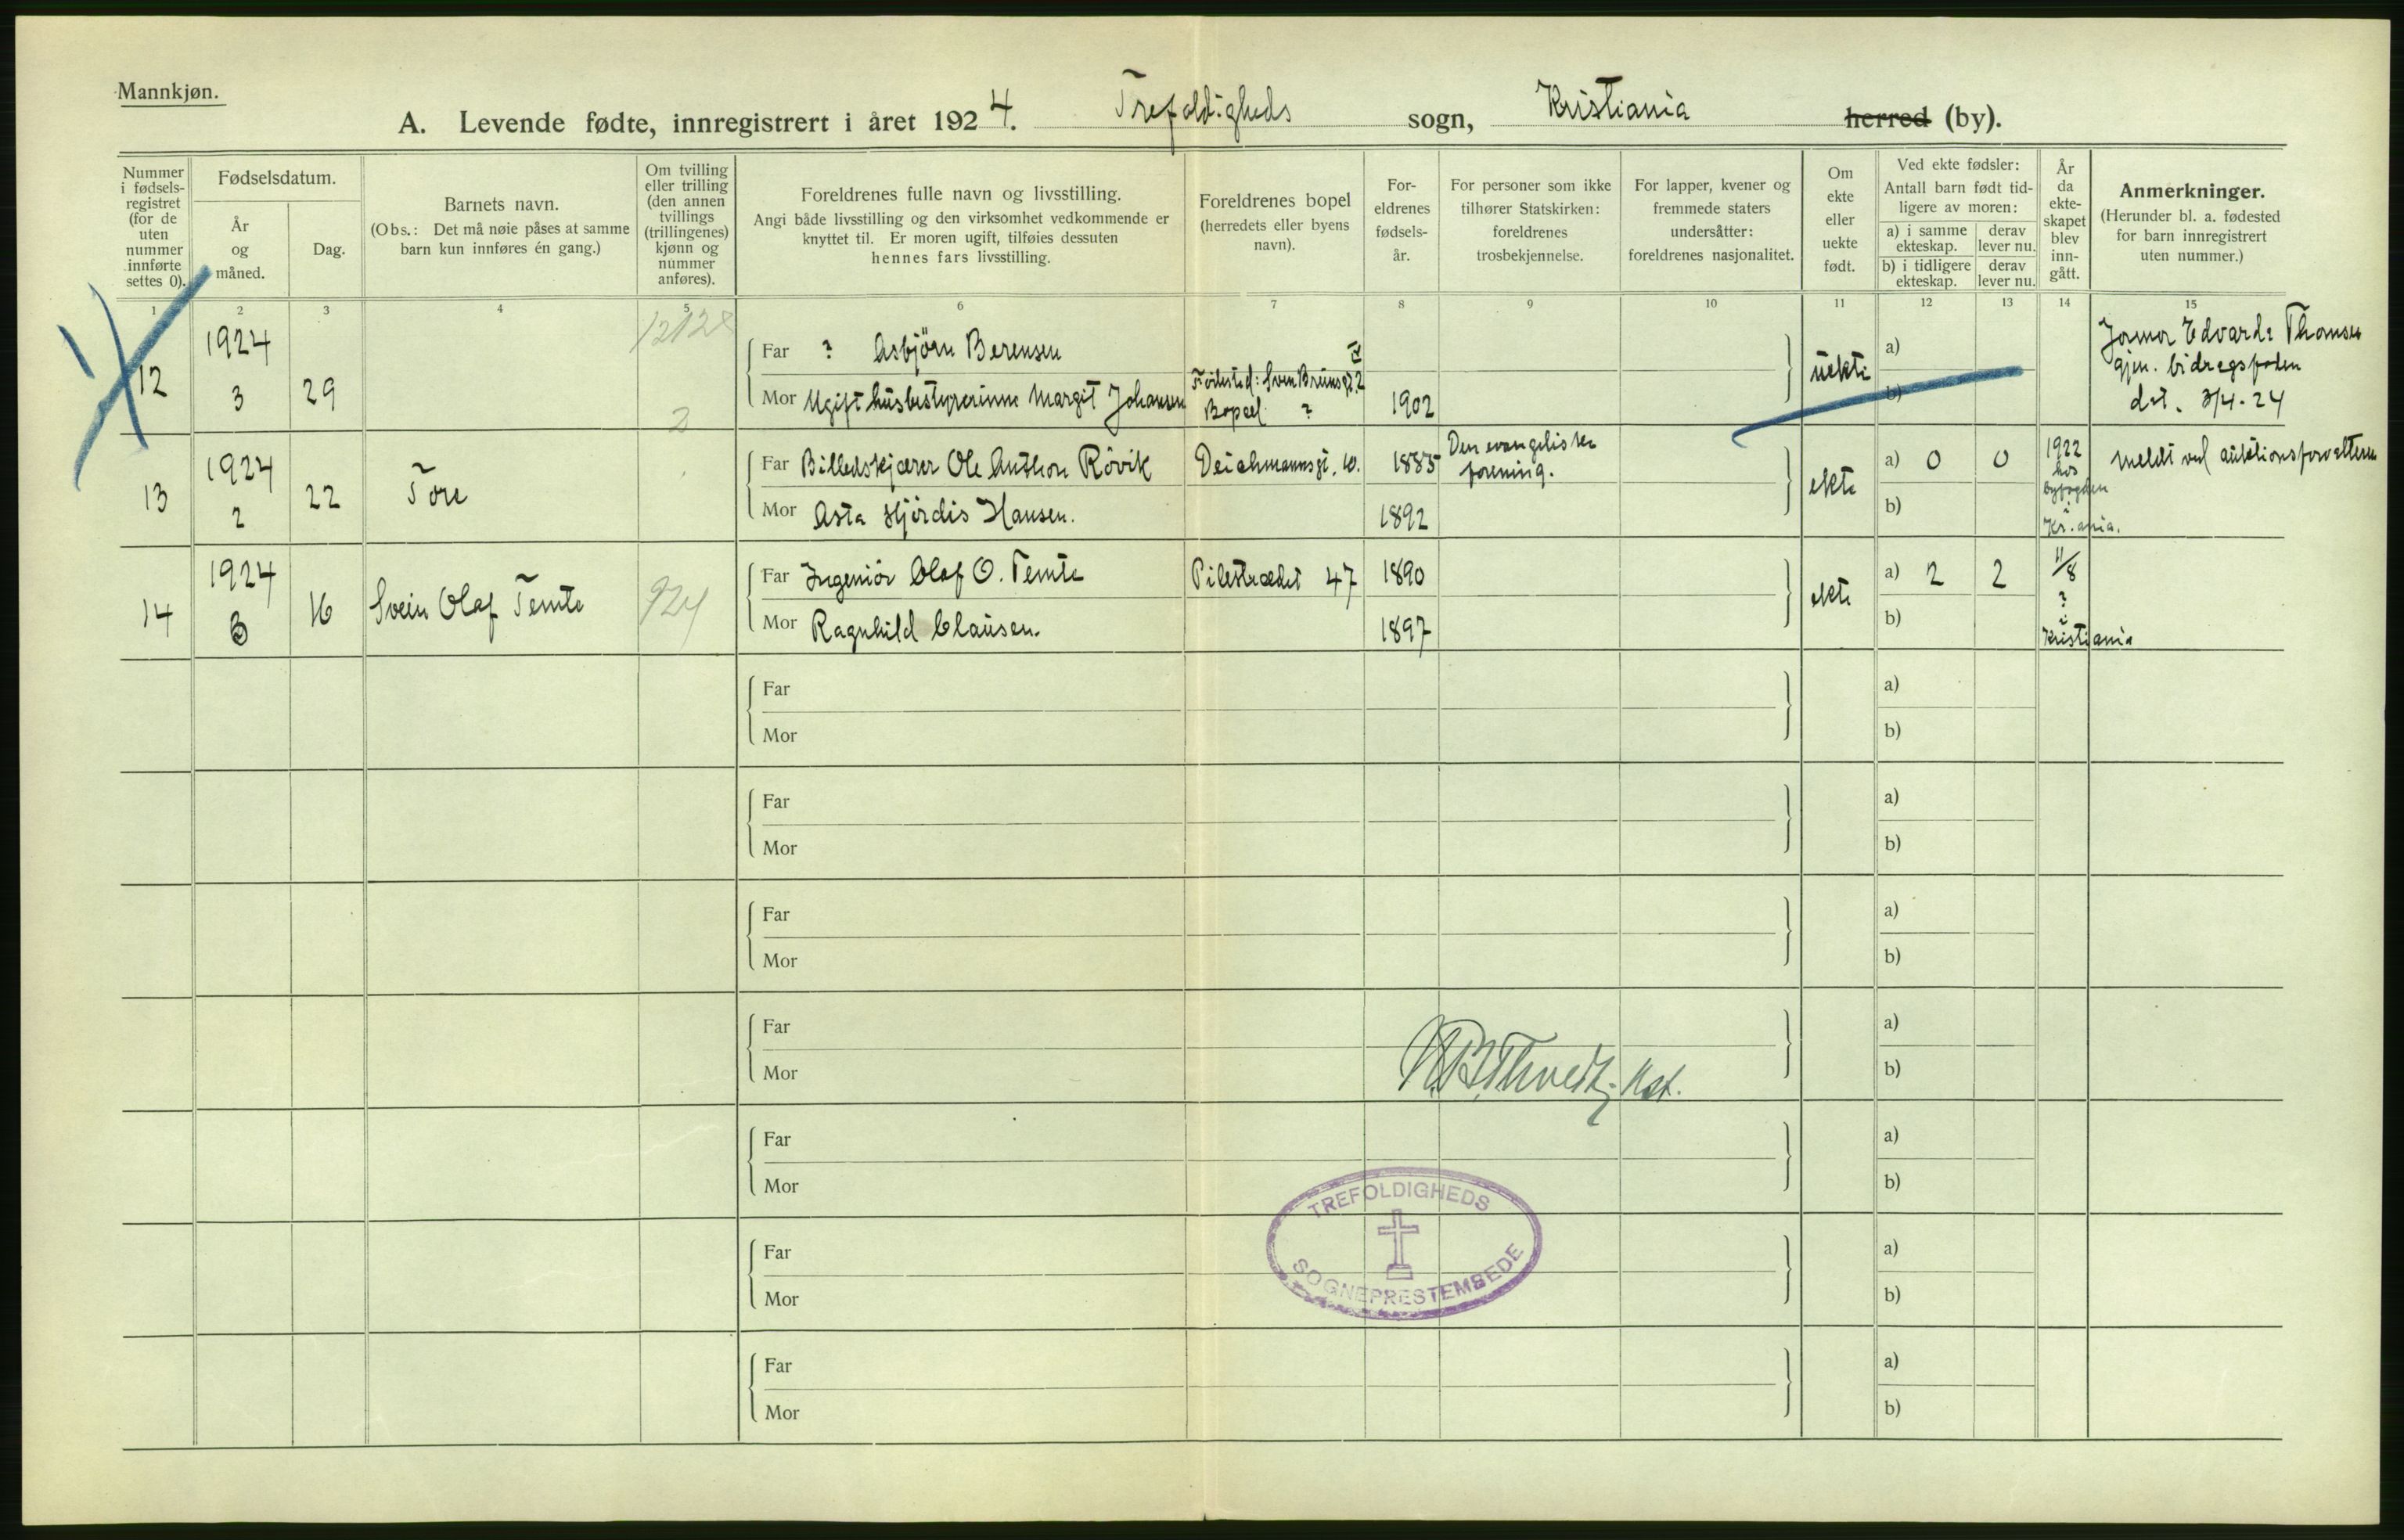 Mannkjøn.
A. Levende fødte, innregistrert i året 1924. Trefoldigheds sogn, Kristiania herred (by).
Nummer i fødsels-registret (for de uten nummer innførte settes 0).
Fødselsdatum.
År og måned.
Dag.
Barnets navn.
(Obs.: Det må nøie påses at samme barn kun innføres én gang.)
Om tvilling eller trilling (den annen tvillings (trillingenes) kjønn og nummer anføres).
Foreldrenes fulle navn og livsstilling.
Angi både livsstilling og den virksomhet vedkommende er knyttet til. Er moren ugift, tilføies dessuten hennes fars livsstilling.
Foreldrenes bopel (herredets eller byens navn).
For-eldrenes fødsels-år.
For personer som ikke tilhører Statskirken: foreldrenes trosbekjennelse.
For lapper, kvener og fremmede staters undersåtter: foreldrenes nasjonalitet.
Om ekte eller uekte født.
Ved ekte fødsler:
Antall barn født tid-ligere av moren:
a) i samme ekteskap.
derav lever nu.
b) i tidligere ekteskap.
derav lever nu.
År da ekte-skapet blev inn-gått.
Anmerkninger.
(Herunder bl. a. fødested for barn innregistrert uten nummer.)
1 2 3 4 5 6 7 8 9 10 11 12 13 14 15
12 1924 3 29
Far ? Asbjörn Berensen
Mor Ugift husbestyrerinne Margit Johansen
Fødested: Sven Bruns gt. 2
Bopæl ?
1902
uekte
a)
b)
Jormor Edvarda Thomsen
gjen. bidragsfoden
det. 3/4-24
13 1924 2 22 Tore
Far Billedskjærer Ole Anthon Rövik Deichmannsgt. 10. 1885 Den evangeliske forening.
Mor Asta Hjördis Hansen. 1892
ekte
a) 0 0
b)
1922
hos
byfogden
i
Kr.ania.
meldt ved auktionsforvalteren
14 1924 3 16 Svein Olaf Temte 924
Far Ingeniör Olaf O. Temte Pilestrædet 47 1890
Mor Ragnhild Clausen. 1897
ekte
a) 2 2
b)
11/8
?
i
Kristiania
Far
Mor
a)
b)
Far
Mor
a)
b)
Far
Mor
a)
b)
Far
Mor
a)
b)
Far
Mor
a)
b)
Far
Mor
a)
b)
Far
Mor
a)
b)
TREFOLDIGHEDS
SOGNEPRESTEMBEDE